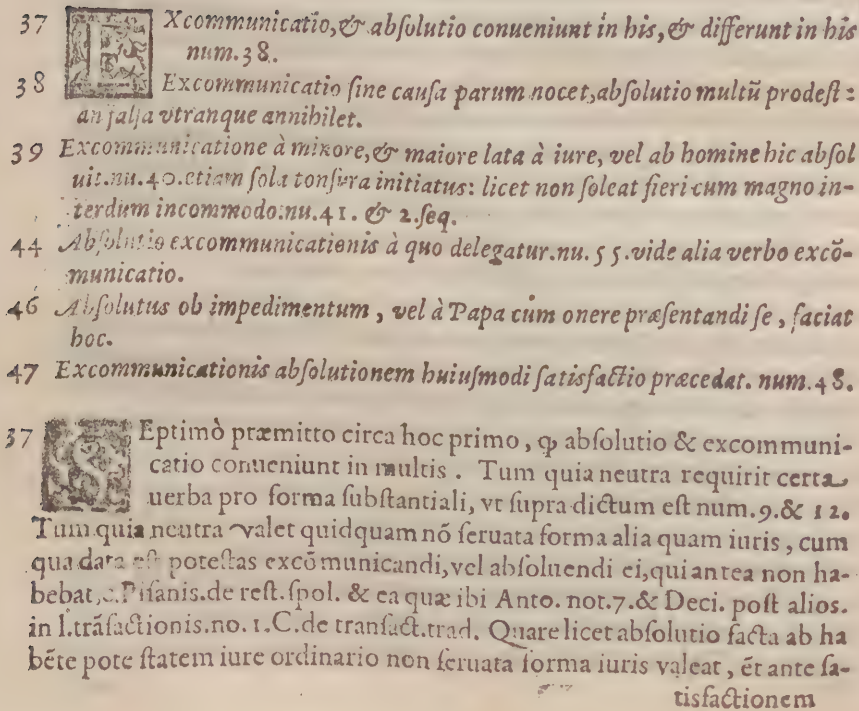 37 EXcommunicatio, & absolutio conueniunt in his, & differunt in his
num.38.
38 Excommunicatio sine causa parum nocet, absolutio multũ prodest:
an falsa vtranque annihilet.
39 Excommunicatione à minore, & maiore lata à iure, vel ab homine hic absol
uit.nu.40.etiam sola tonsura initiatus: licet non soleat fieri cum magno in-
terdum incommodo.nu.41. & 2.seq.
44 Absolutio excommunicationis à quo delegatur.nu.55.vide alia verbo excõ-
municatio.
46 Absolutus ob impedimentum, vel à Papa cùm onere præsentandi se, faciat
hoc.
47 Excommunicationis absolutionem huiusmodi satisfactio præcedat. num.48.
37 SEptimò præmitto circa hoc primo, ꝙ absolutio & excommuni-
catio conueniunt in multis. Tum quia neutra requirit certa
uerba pro forma substantiali, vt supra dictum est num.9.& 12.
Tum quia neutra valet quidquam nõ seruata forma alia quam iuris, cum
qua data est potestas excõmunicandi, vel absoluendi ei, qui antea non ha-
bebat, c.Pisanis.de rest.spol. & ea quæ ibi Anto. not.7.& Deci. post alios.
in l.trãsactionis.no.1.C.de transact.trad. Quare licet absolutio facta ab ha
bẽte pote statem iure ordinario non seruata forma iuris valeat, ẽt ante sa-
tisfactionem